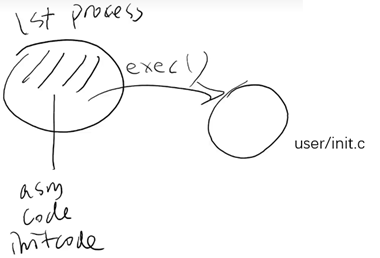 1st process
exec()
user/init.c
asm
code
initcode